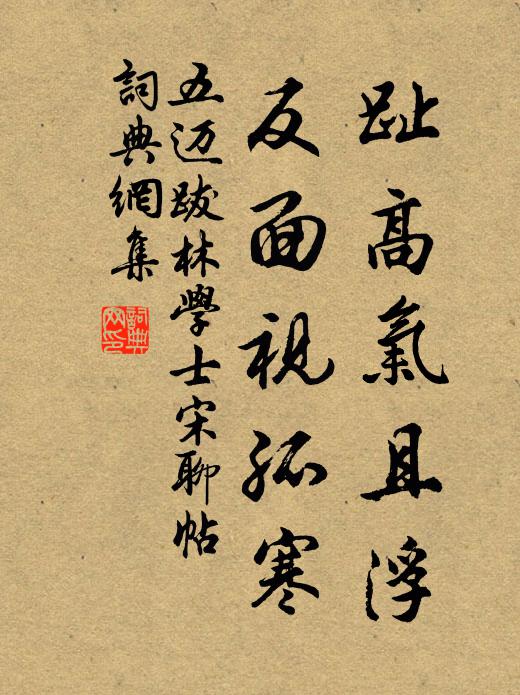 趾高氣且浮
反面視孤寒
五迈跋林學士宋聊帖
詞典網集
詞典网印